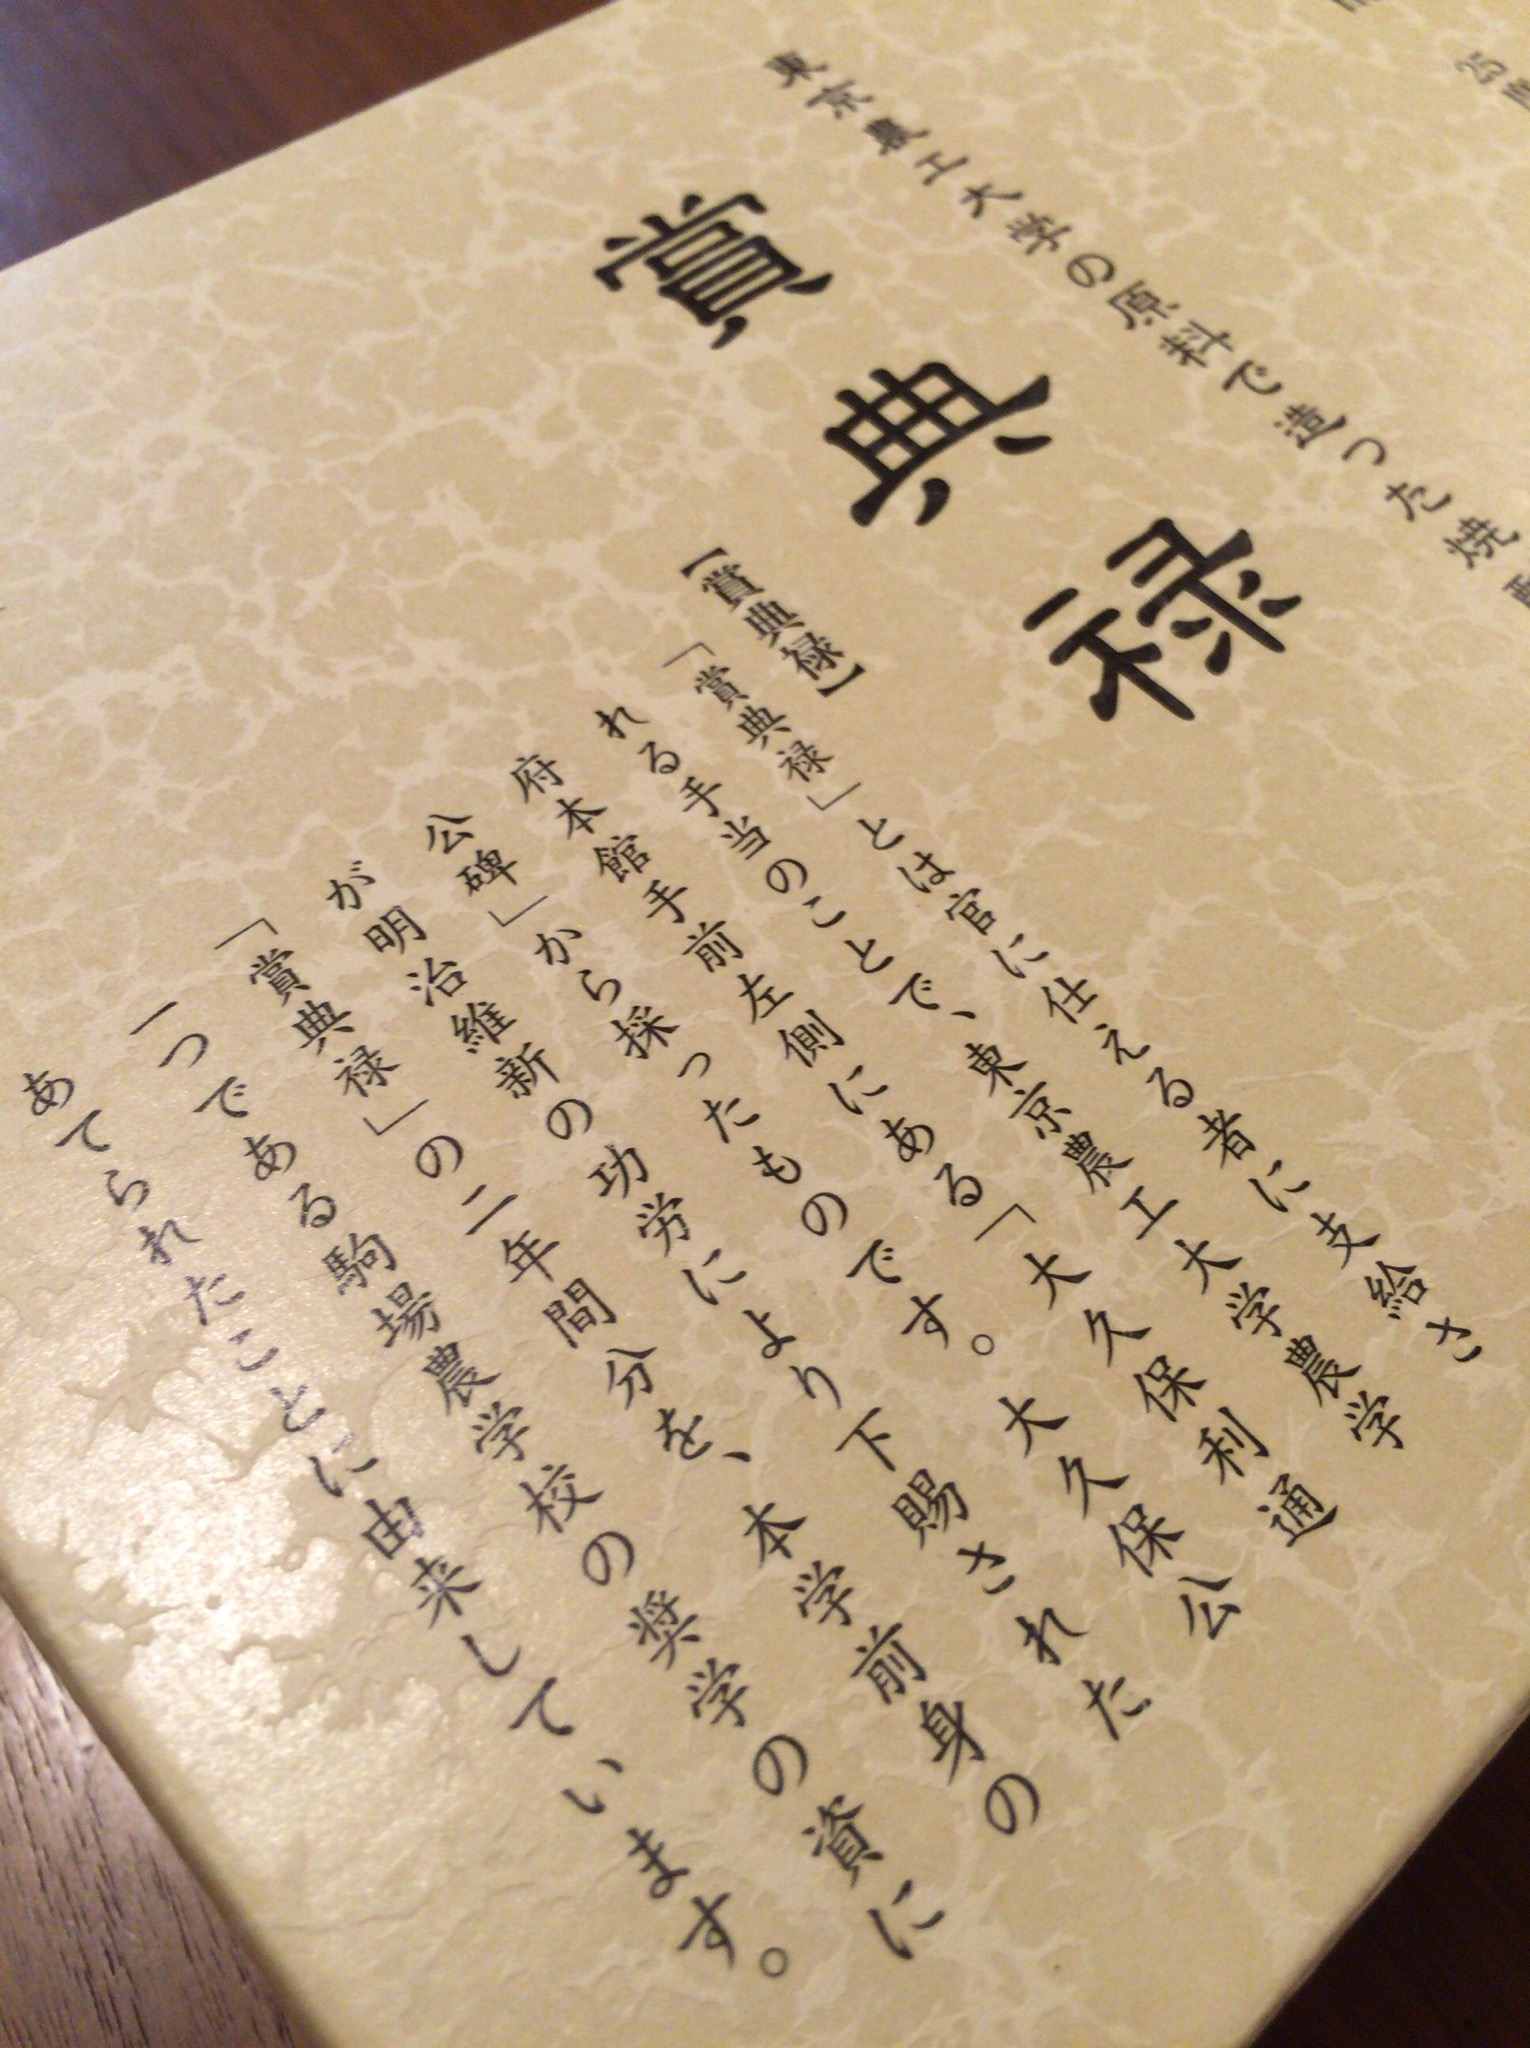 東京農工大学の原料で造った焼酎
賞典禄
【賞典禄】
「賞典禄」とは官に仕える者に支給さ
れる手当のことで、東京農工大学農学
府本館手前左側にある「大久保利通
公碑」から採ったものです。大久保公
が明治維新の功労により下賜された
「賞典禄」の二年間分を、本学前身の
一つである駒場農学校の奨学の資に
あてられたことに由来しています。